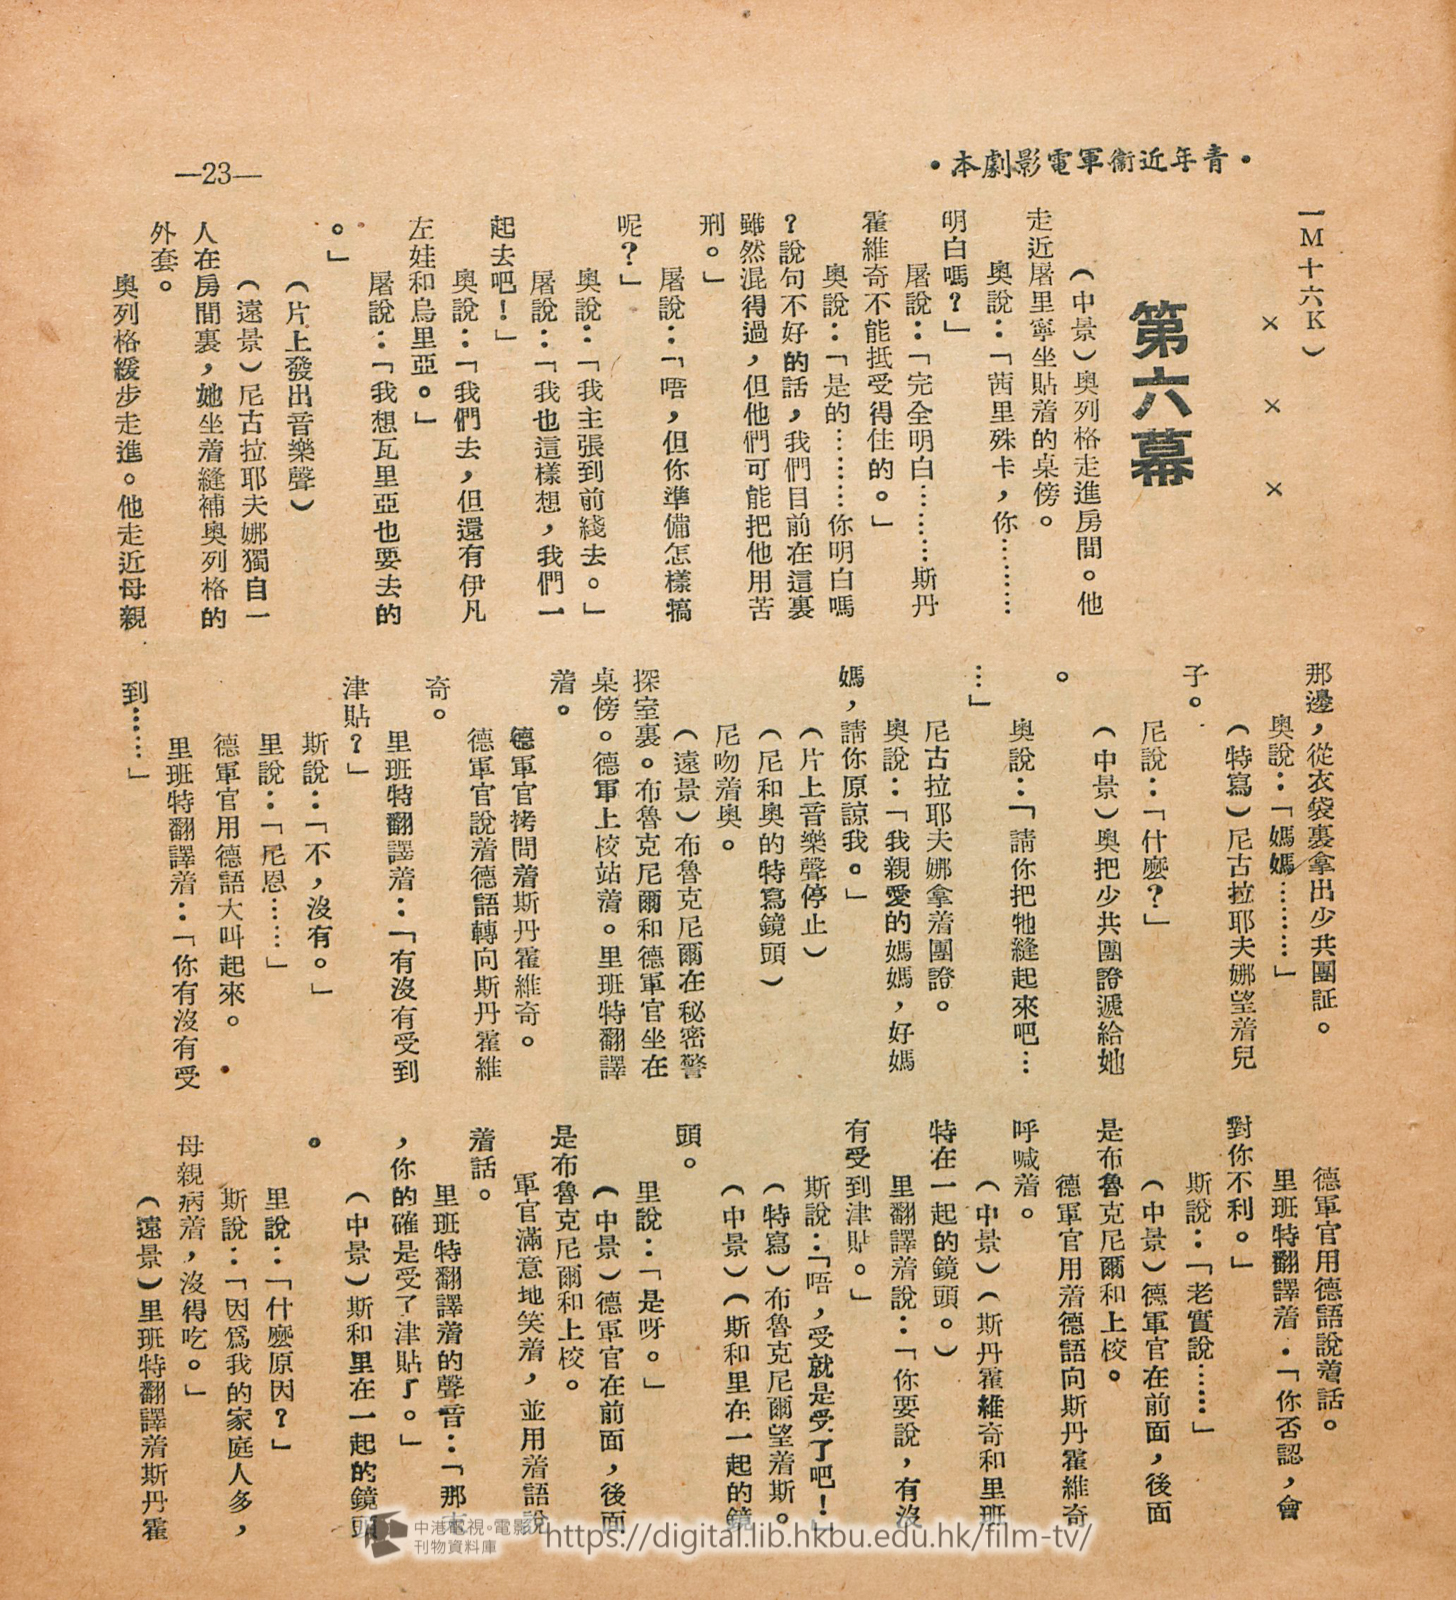 •青年近衞軍電影劇本•
—23—
一M十六K）
× × ×
第六幕
（中景）奥列格走進房間。他
走近屠里寧坐貼着的桌傍。
奥說：「茜里殊卡，你………
明白嗎？」
屠說：「完全明白………斯丹
霍維奇不能抵受得住的。」
奥說：「是的………你明白嗎
？說句不好的話，我們目前在這裏
雖然混得過，但他們可能把他用苦
刑。」
屠說：「唔，但你準備怎樣犒
呢？」
奥說：「我主張到前綫去。」
屠說：「我也這樣想，我們一
起去吧！」
奥說：「我們去，但還有伊凡
左娃和烏里亞。」
屠說：「我想瓦里亞也要去的
。」
（片上發出音樂聲）
（遠景）尼古拉耶夫娜獨自一
人在房間裏，她坐着縫補奥列格的
外套。
奥列格緩步走進。他走近母親
那邊，從衣袋裏拿出少共團証。
奥說：「媽媽………」
（特寫）尼古拉耶夫娜望着兒
子。
尼說：「什麼？」
（中景）奥把少共團證遞給她
。
奥說：「請你把牠縫起來吧…
…」
尼古拉耶夫娜拿着團證。
奥說：「我親愛的媽媽，好媽
媽，請你原諒我。」
（片上音樂聲停止）
（尼和奥的特寫鏡頭）
尼吻着奥。
（遠景）布魯克尼爾在秘密警
探室裏。布魯克尼爾和德軍官坐在
桌傍。德軍上校站着。里班特翻譯
着。
德軍官拷問着斯丹霍維奇。
德軍官說着德語轉向斯丹霍維
奇。
里班特翻譯着：「有沒有受到
津貼？」
斯說：「不，沒有。」
里說：「尼恩……」
德軍官用德語大叫起來。
里班特翻譯着：「你有沒有受
到……」
德軍官用德語說着話。
里班特翻譯着·「你否認，會
對你不利。」
斯說：「老實說……」
（中景）德軍官在前面，後面
是布魯克尼爾和上校。
德軍官用着德語向斯丹霍維奇
呼喊着。
（中景）（斯丹霍維奇和里班
特在一起的鏡頭。）
里翻譯着說：「你要說，有沒
有受到津貼。」
斯說：「唔，受就是受了吧！」
（特寫）布魯克尼爾望着斯。
（中景）（斯和里在一起的鏡
頭。
里說：「是呀。」
（中景）德軍官在前面，後面
是布魯克尼爾和上校。
軍官滿意地笑着，並用着語說
着話。
里班特翻譯着的聲音：「那末
，你的確是受了津貼了。」
（中景）斯和里在一起的鏡頭
。
里說：「什麼原因？」
斯說：「因爲我的家庭人多，
母親病着，沒得吃。」
（遠景）里班特翻譯着斯丹霍
中港電視·電影
刊物資料庫
https://digital.lib.hkbu.edu.hk/film-tv/